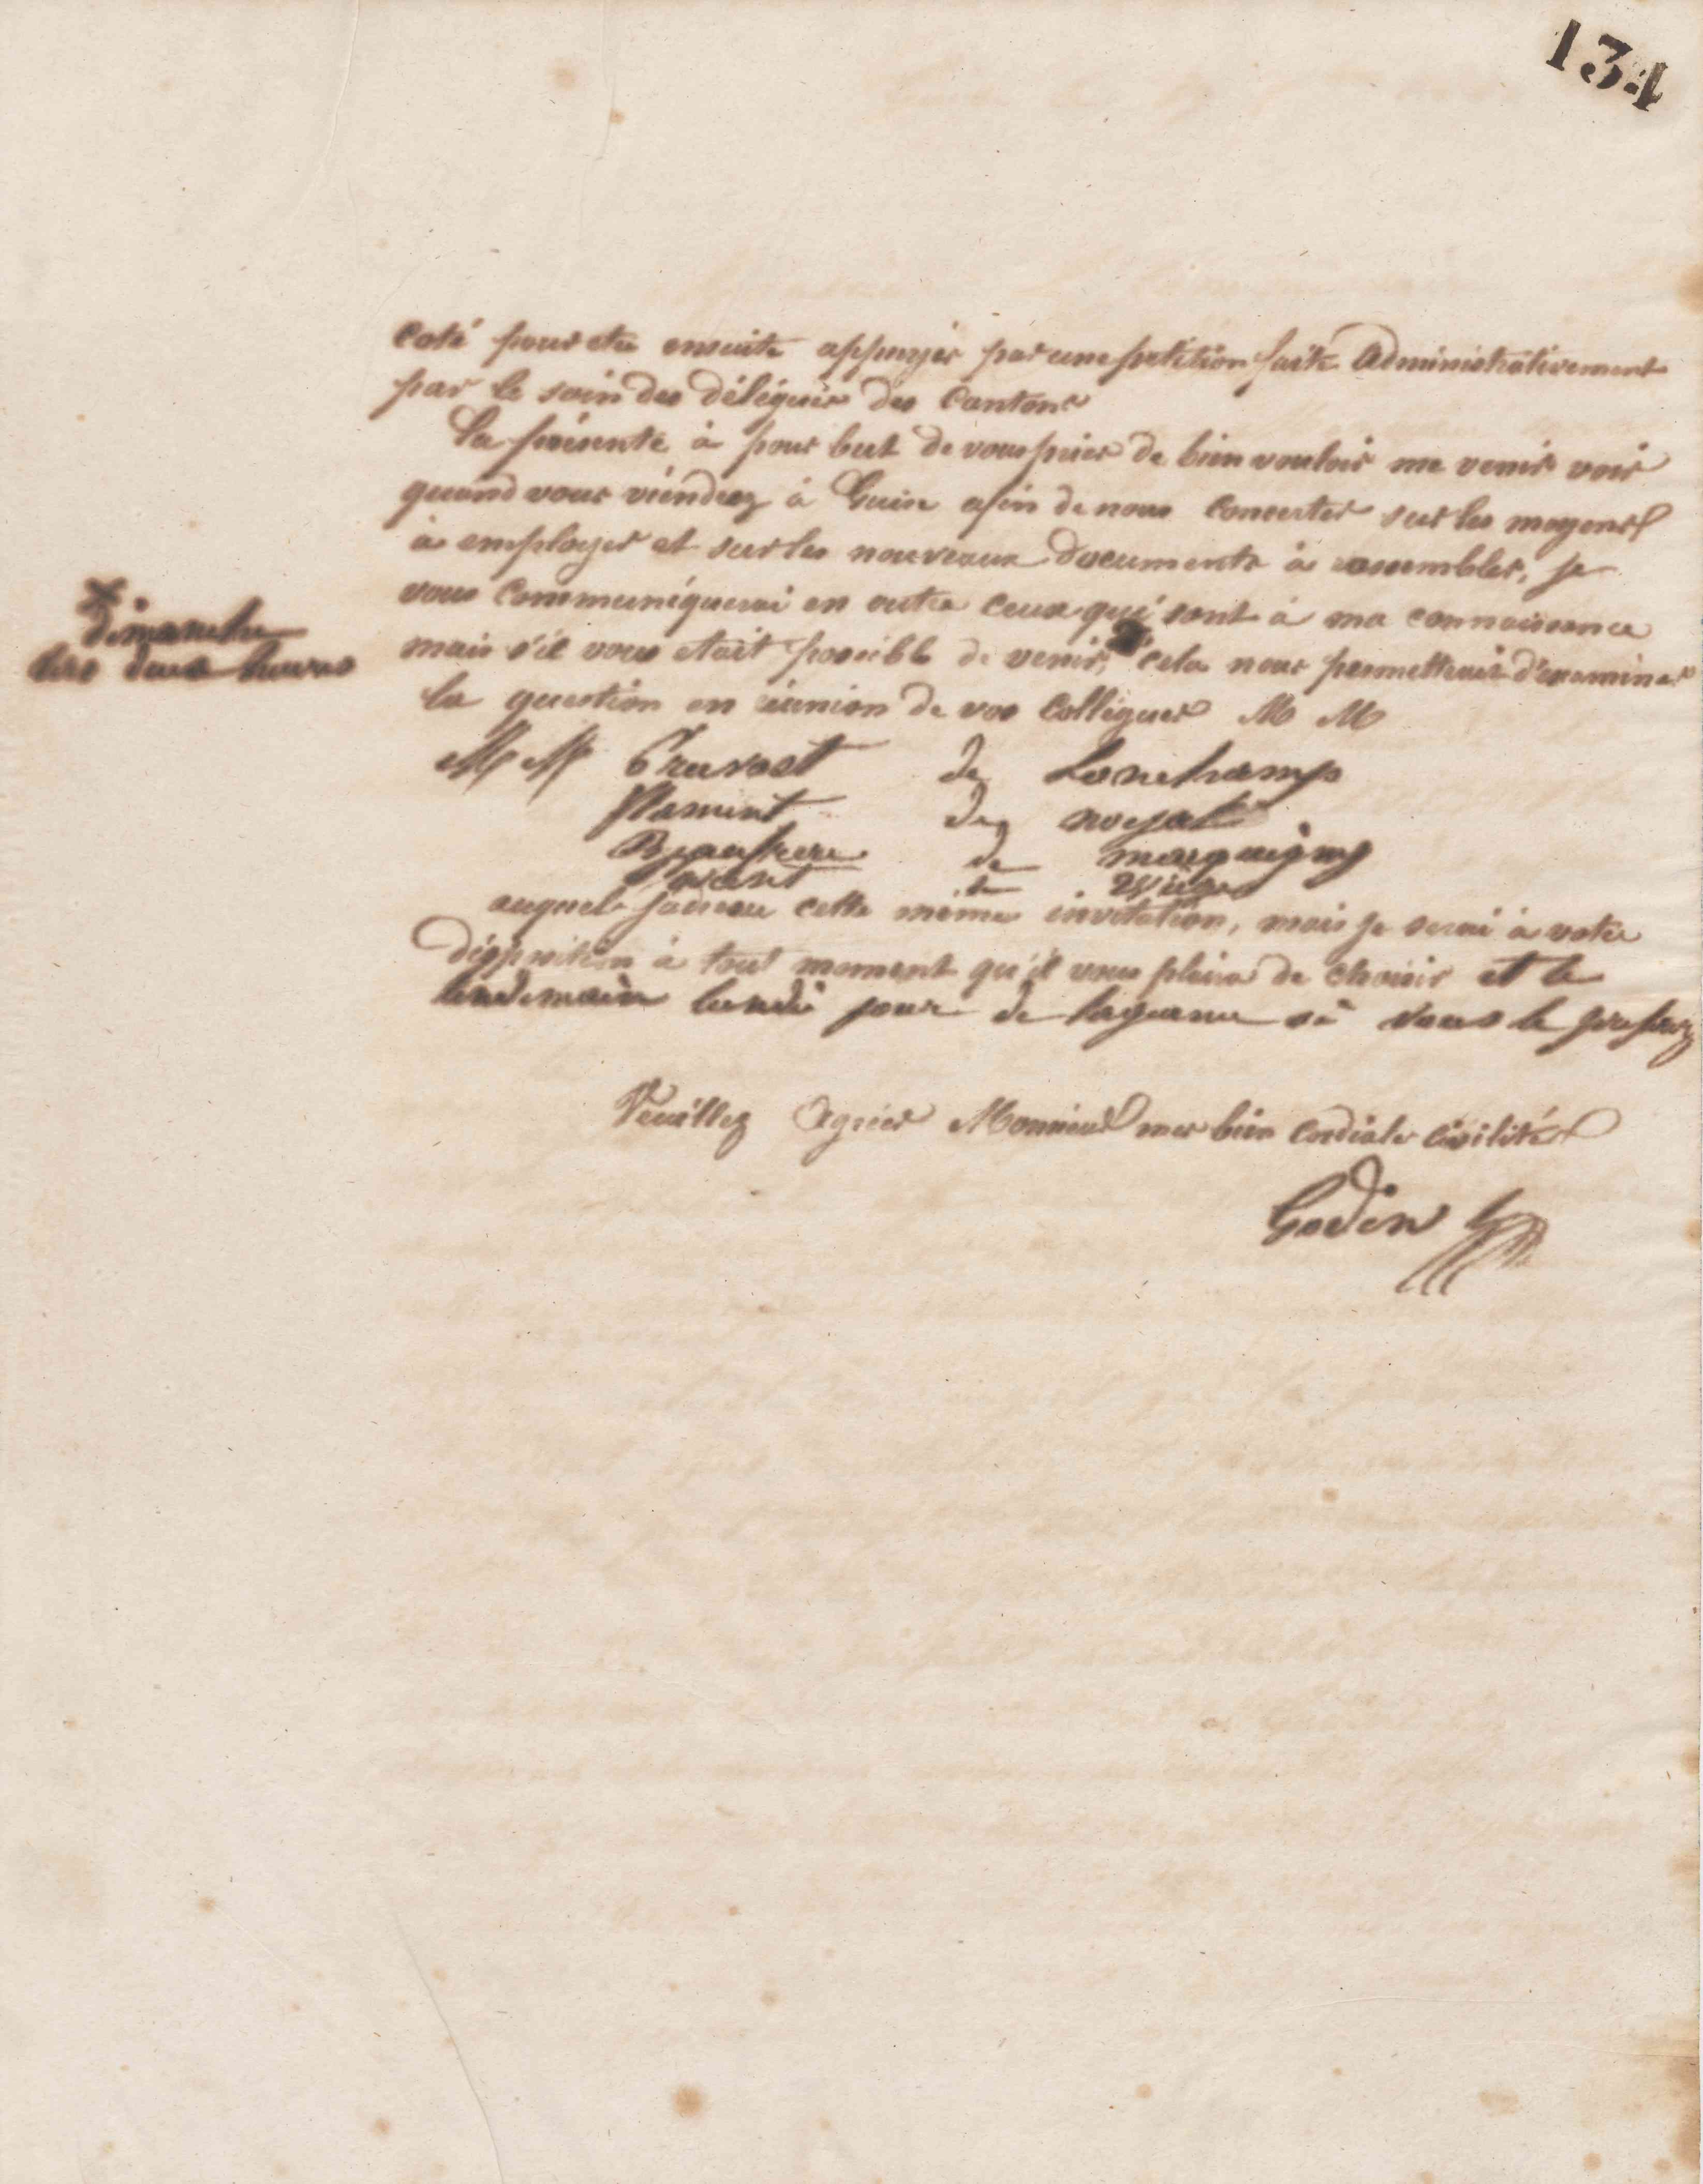 134
coté pour etre ensuite appuyés par une pétition faite administrativement
par le soin des délégués des Cantons
La présente à pour but de vous prier de bien vouloir me venir voir
quand vous viendrez à Guise afin de nous concerter sur les moyens
à employer et sur les nouveaux documents à rassembler, je
vous communiquerai en outre ceux qui sont à ma connaissance
mais s'il vous etait possible de venir, cela nous permettrait d'examiner
x
dimanche
vers deux heures
la question en réunion de vos collègues M M
M M Pruvost de Lonchamps
Flamint de noyal
Beaufrere de marquigny
de
auquel j'adresse cette même invitation, mais je serai à votre
disposition à tout moment qu'il vous plaira de choisir et le
lendemain lundi jour de si vous le préférez
Veuillez agréer Monsieur mes bien cordiales civilités
Godin